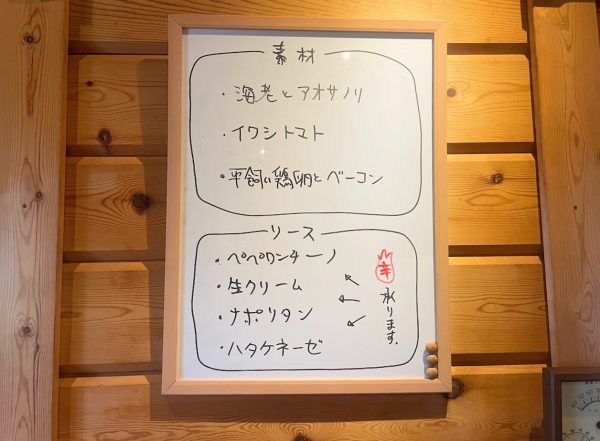 素材
・海老とアオサノリ
・イワシトマト
・平飼い鶏卵とベーコン
ソース
・ペペロンチーノ
・生クリーム
・ナポリタン
・ハタケネーゼ
辛
承ります。